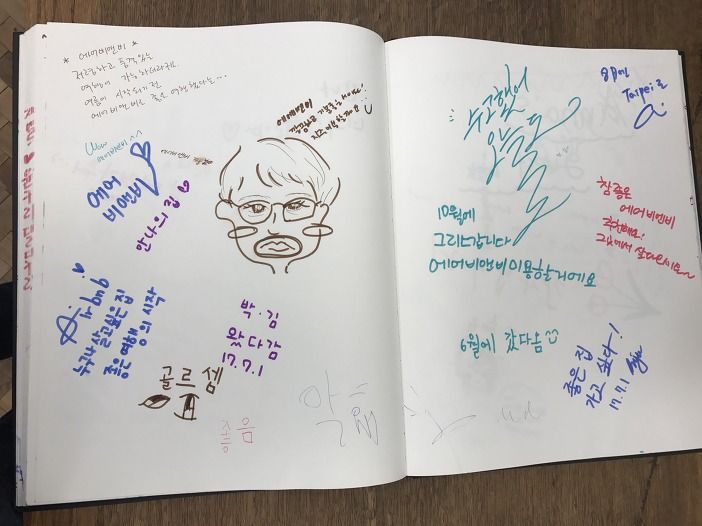 * 에어비앤비 *
저렴하고 품격있는
여행이 가능하더라구요
여름이 시작되기 전
에어비앤비로 좋은 여행 했다는...
에어비앤비
Wow
에어비앤비^^
에어
비앤비
안나의 집 ♡
Airbnb
누구나 살고싶은 집
좋은 여행의 시작
박·김
왔다감
17.7.1
골르셈
좋음
수고했어
오늘도
8월에
Taipei로
10월에
그리스갑니다
에어비앤비이용할거에요
참 좋은
에어비엔비
추천해요!
그집에서 살다오세요~
6월에 갔다옴
좋은 집
가고 싶다!
17.7.1